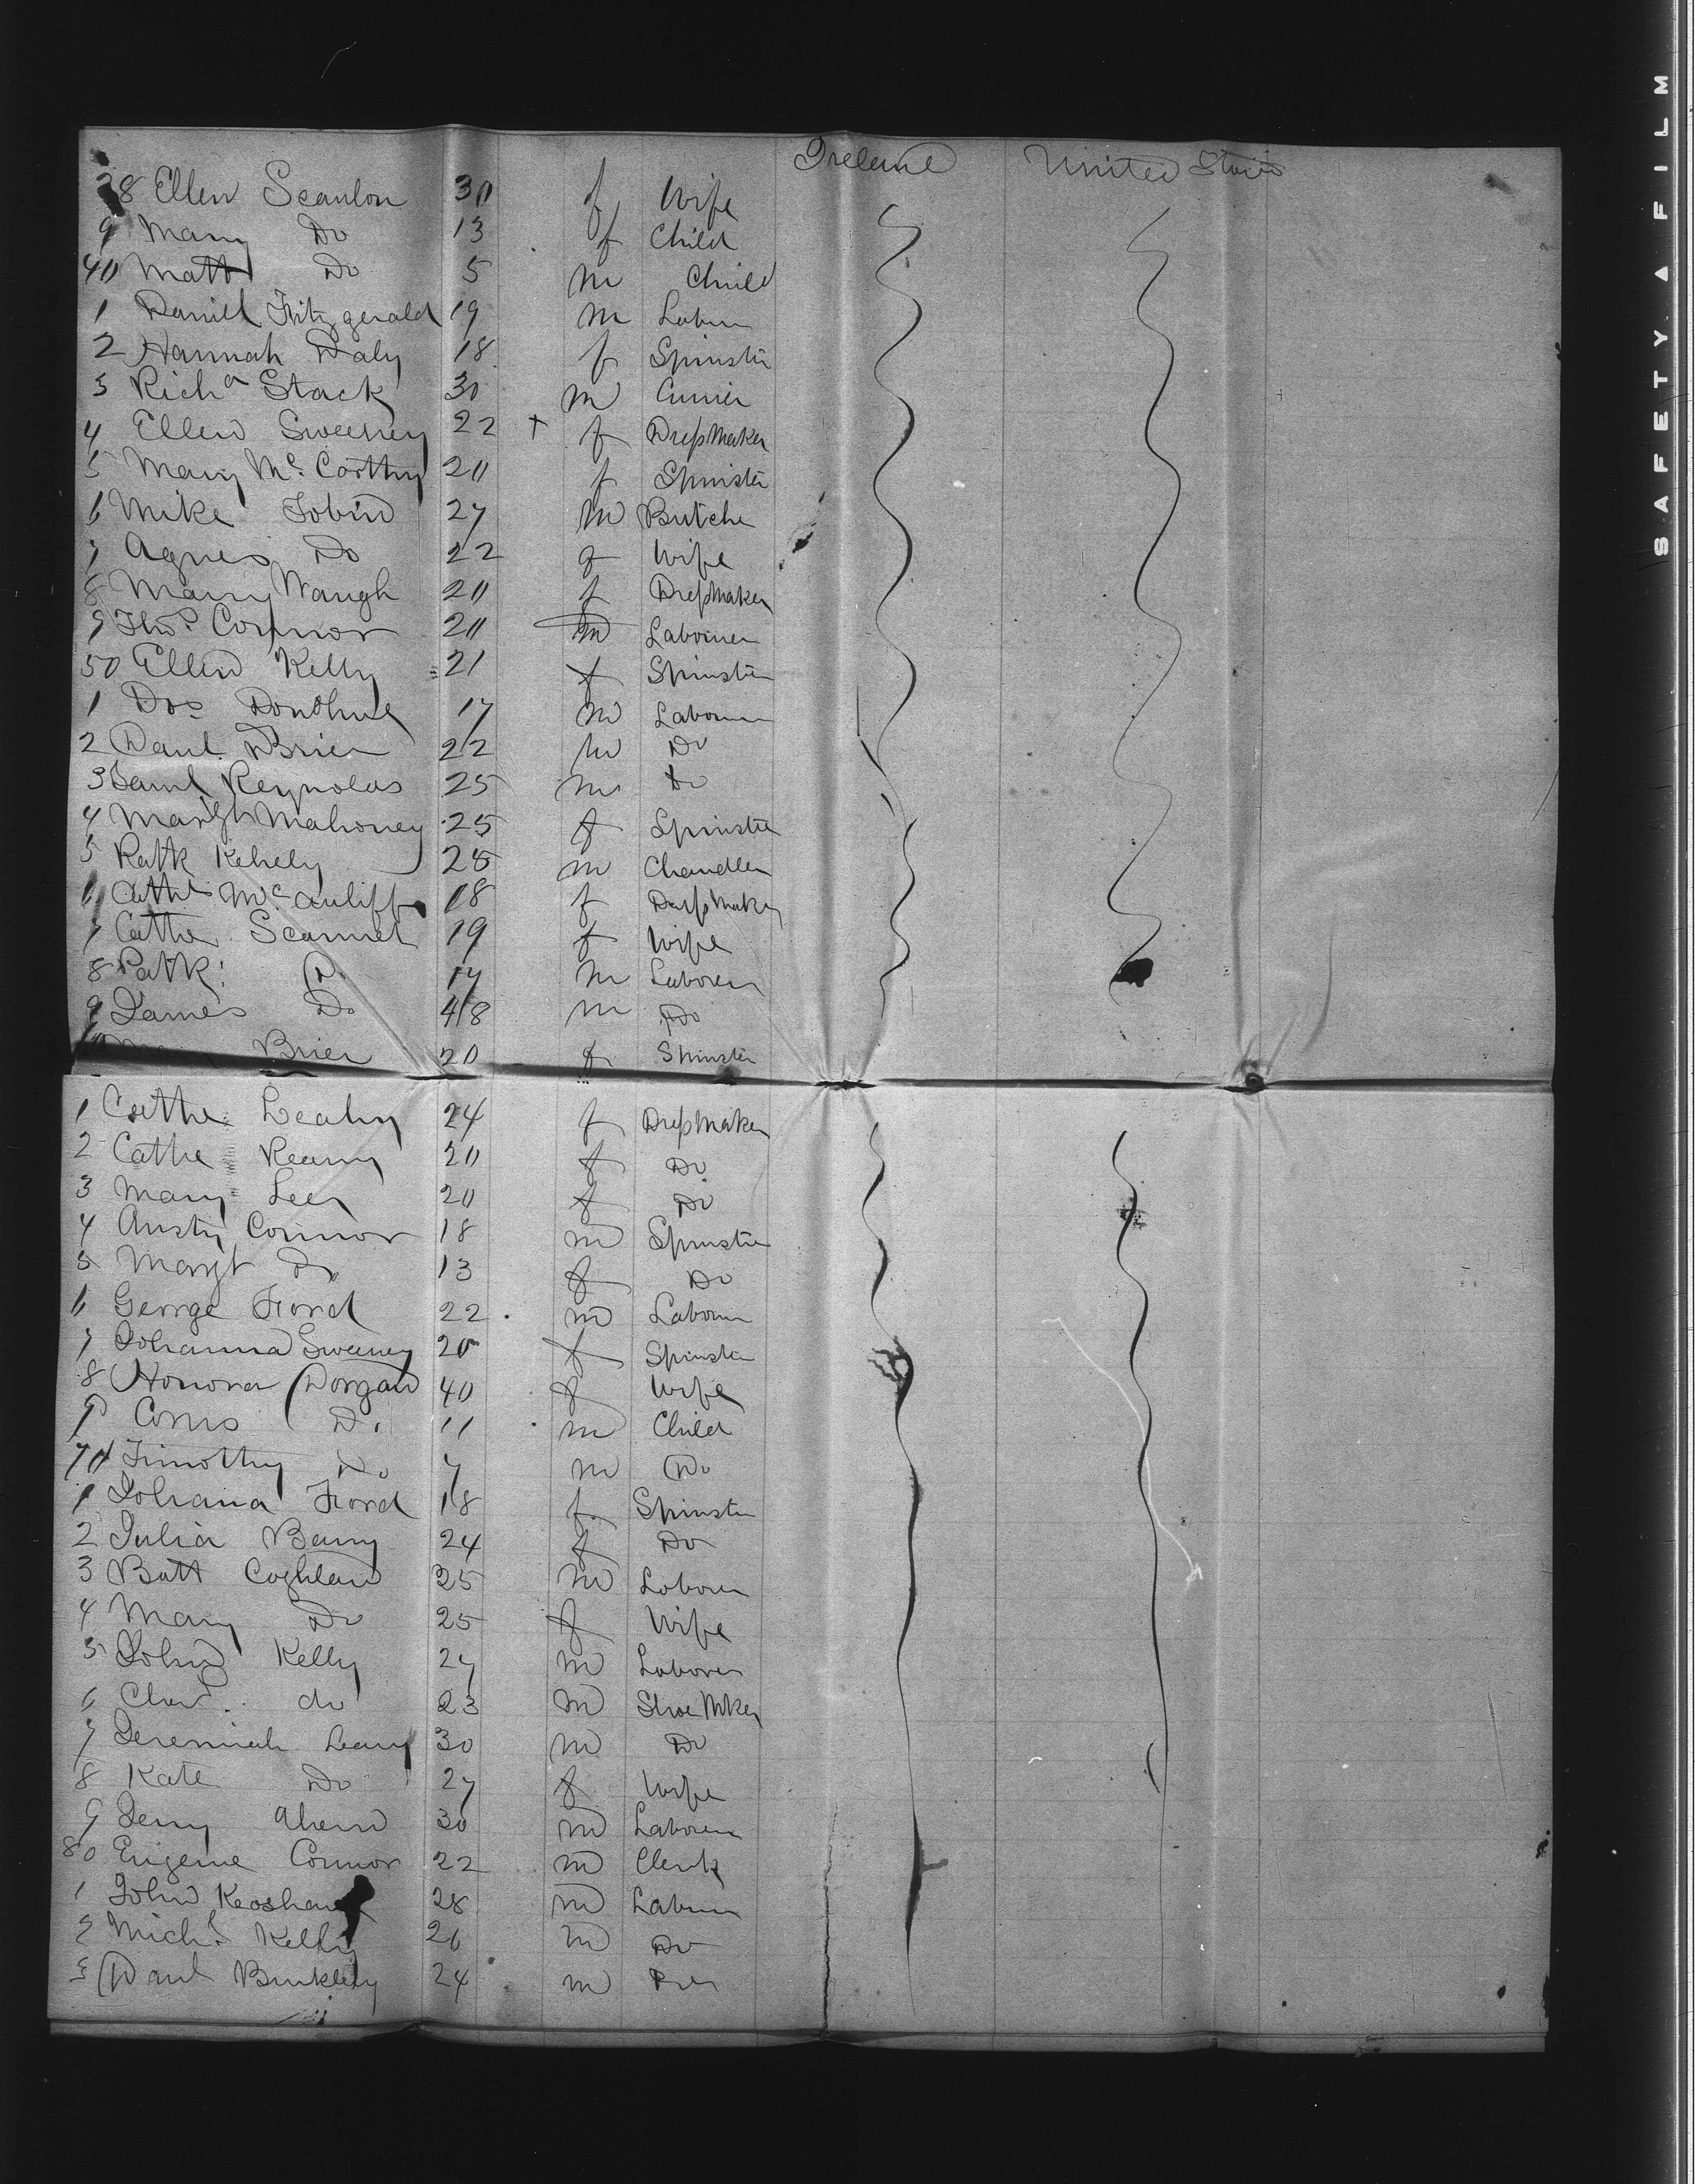 Ireland United States
38 Ellen Scanlon 30 f Wife
9 Mary Do 13 f Child
40 Matt Do 5 m Child
1 Daniel Fitzgerald 19 m Labourer
2 Hannah Daly 18 f Spinster
3 Richd Stack 30 m Currier
4 Ellen Sweeney 22 + f DressMaker
5 Mary Mc Carthy 20 f Spinster
6 Mike Tobin 27 m Butcher
7 Agnes Do 22 f Wife
8 Mary Waugh 20 f DressMaker
9 Thos Connor 20 m Labourer
50 Ellen Kelly 21 f Spinster
1 Donohue 17 m Labourer
2 Danl Brien 22 m Do
3 Saml Reynolds 25 m Do
4 Margt Mahoney 25 f Spinster
5 Patk Kehely 28 m Chandler
6 Cathe McAuliffe 18 f DressMaker
7 Cathe Scannel 19 f Wife
8 Patk Do 17 m Laborer
9 James Do 48 m Do
Brien 20 f Spinster
1 Cathe Leahy 24 f DressMaker
2 Cathe Reamy 20 f Do
3 Mary Lee 20 f Do
4 Austy Connor 18 m Spinster
5 Margt Do 13 f Do
6 George Ford 22 m Labourer
7 Johanna Sweeney 20 f Spinster
8 Honora Dorgan 40 f Wife
9 Corns Do 11 m Child
70 Timothy Do 7 m Do
1 Johana Ford 18 f Spinster
2 Julia Barry 24 f Do
3 Batt Coghlan 25 m Laborer
4 Mary Do 25 f Wife
5 John Kelly 27 m Laborer
6 do 23 m Shoe Mker
7 Jeremiah Leary 30 m Do
8 Kate Do 27 f Wife
9 Jerry Ahern 30 m Laborer
80 Eugene Connor 22 m Clerk
1 John 28 m Laborer
2 Michl Kelly 26 m Do
3 Danl Buckley 24 m
SAFETY ▲ FILM